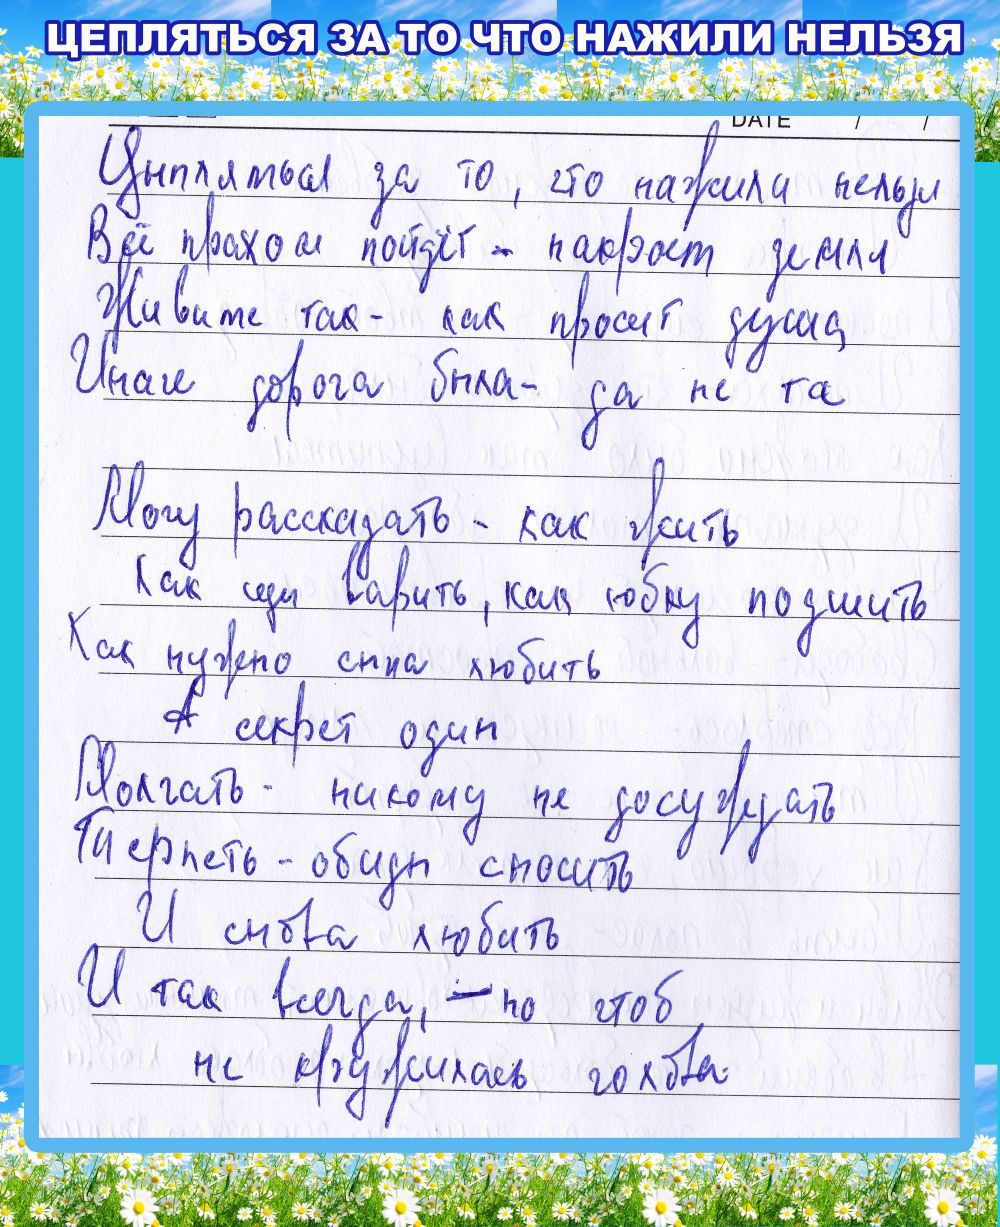 ЦЕПЛЯТЬСЯ ЗА ТО ЧТО НАЖИЛИ НЕЛЬЗЯ
DATE / /
Цыпляться за то, что нажили нельзя
Всё прахом пойдёт - накроет земля
Живите так - как просит душа
Иначе дорога была - да не та
Могу рассказать - как жить
Как щи варить, как юбку подшить
Как нужно сына любить
А секрет один
Молчать - никому не досуждать
Тиерпеть - обиды сносить
И снова любить
И так всегда, - но чтоб
не кружилась голова